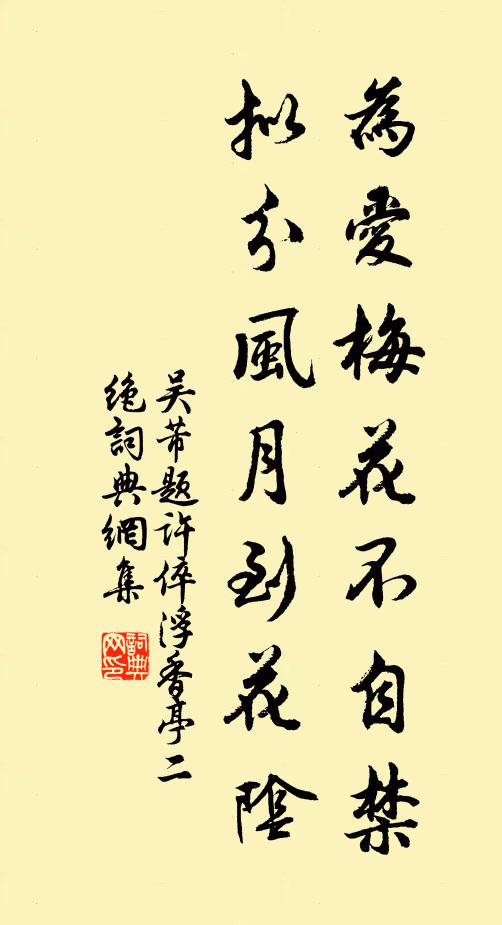 為愛梅花不自禁
拟分風月到花陰
吴芾题许倅浮香亭二
绝詞典網集
詞典
网印